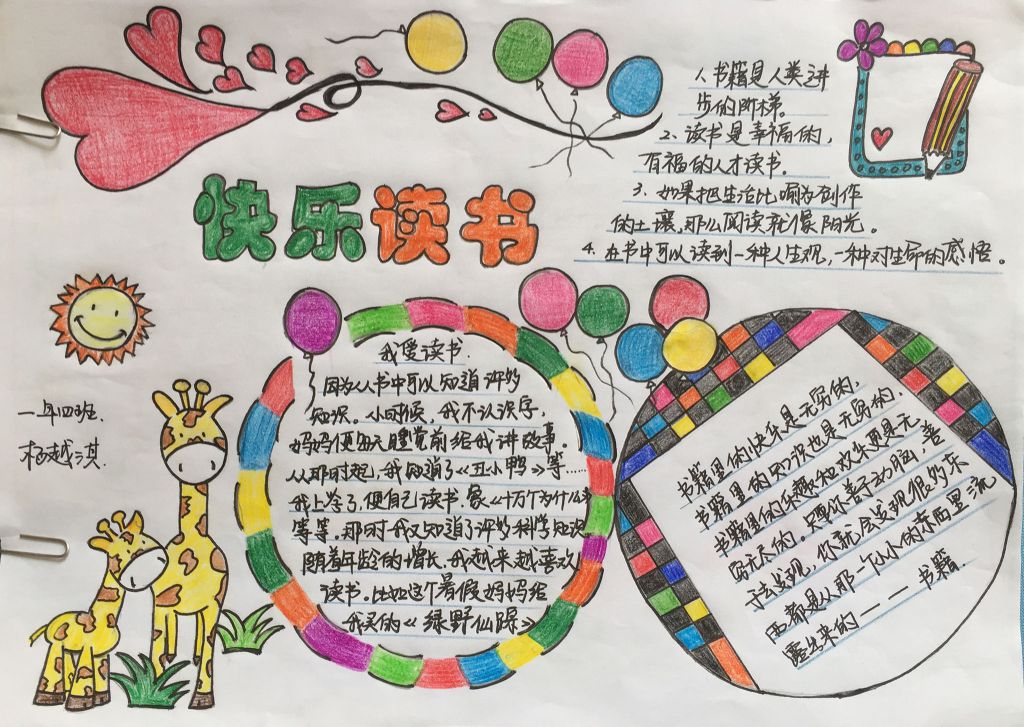 快乐读书
1、书籍是人类进
步的阶梯。
2、读书是幸福的，
有福的人才读书。
3、如果把生活比喻为创作
的土壤，那么阅读就像阳光。
4、在书中可以读到一种人生观，一种对生命的感悟。
一年四班
越淇
我爱读书
因为从书中可以知道许多
知识。小时候，我不认识字，
妈妈便每天睡觉前给我讲故事。
从那时起，我知道了《丑小鸭》等……
我上学了，便自己读书，象《十万个为什么》
等等。那时我又知道了许多科学知识
随着年龄的增长，我越来越喜欢
读书。比如这个暑假妈妈给
我买的《绿野仙踪》
书籍里的快乐是无穷的，
书籍里的知识也是无穷的，
书籍里的乐趣和欢乐更是无
穷无尽的。只要你善于动脑，善
于去发现，你就会发现很多东
西都是从那一个小小的东西里流
露出来的——书籍